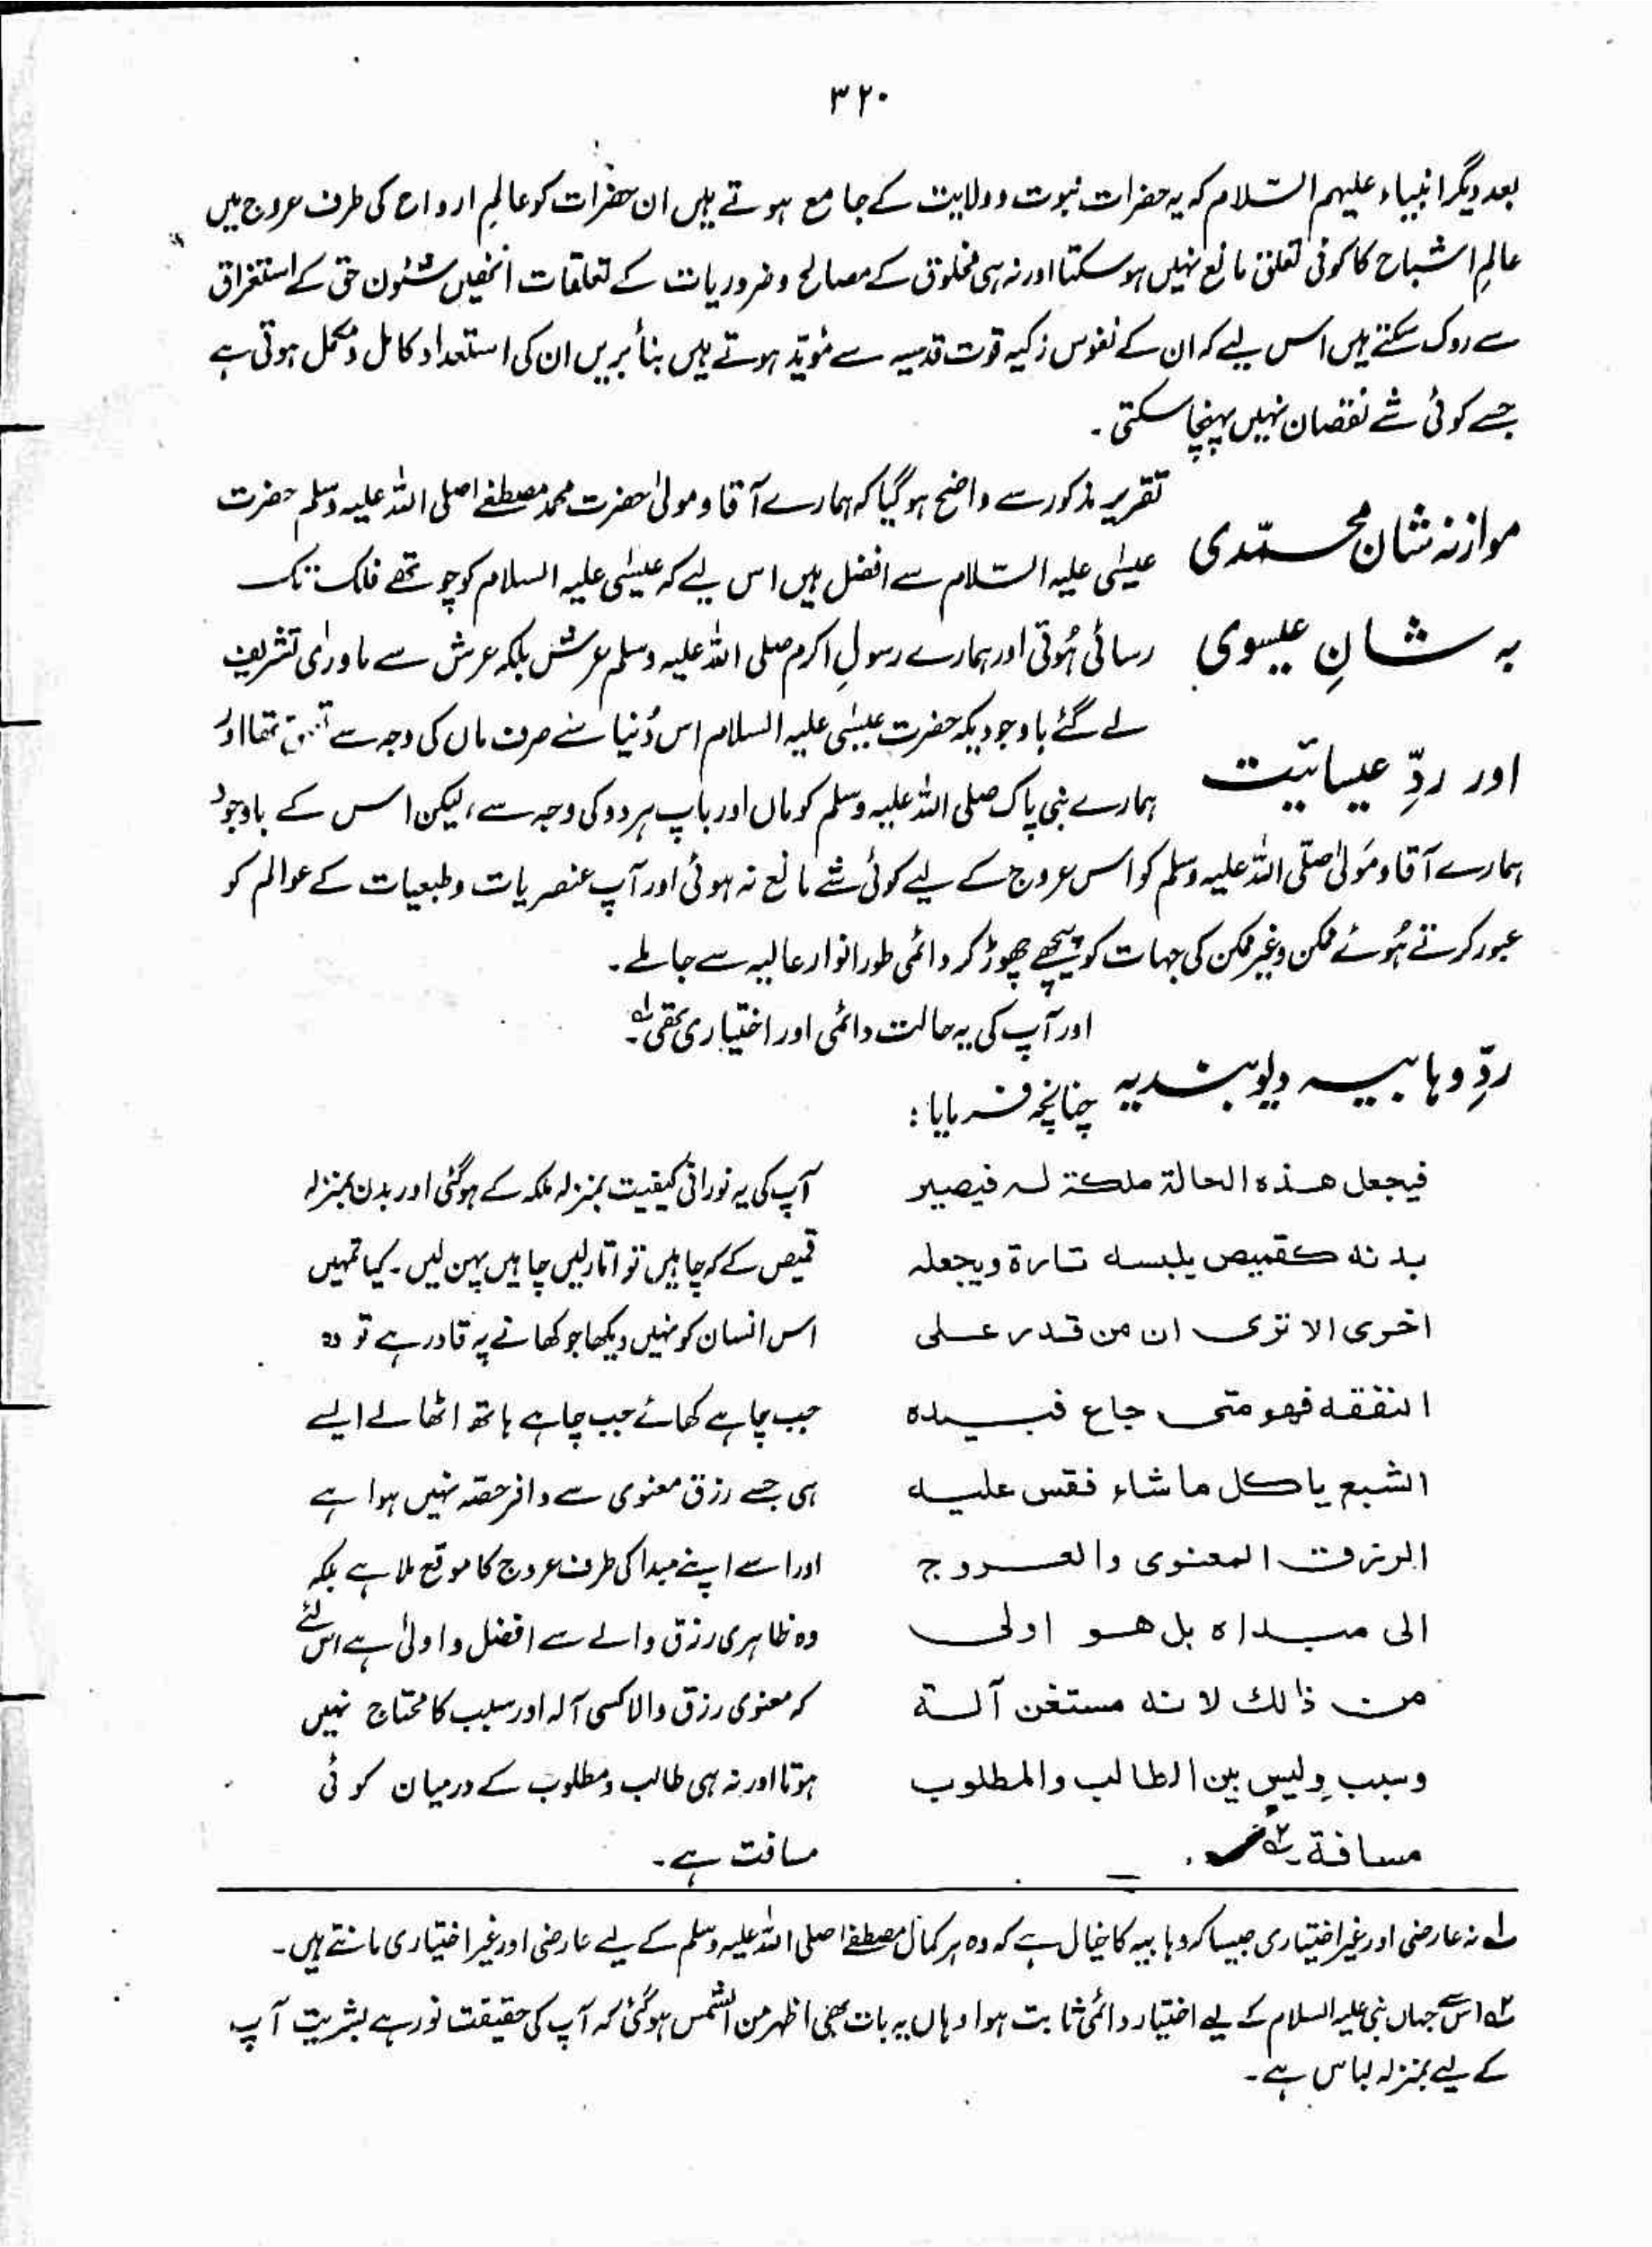 ۳۲۰
بعد دیگر انبیاء علیہم السّلام کہ یہ حضرات نبوت و ولایت کے جامع ہوتے ہیں ان حضرات کو عالمِ ارواح کی طرف عروج میں
عالمِ اشباح کا کوئی تعلق مانع نہیں ہوسکتا اور نہ ہی مخلوق کے مصالح و ضروریات کے تعلقات انھیں شئون حق کے استغراق
سے روک سکتے ہیں اس لیے کہ ان کے نفوس زکیہ قوت قدسیہ سے مؤیّد ہوتے ہیں بنأ بریں ان کی استعداد کامل و مکمل ہوتی ہے
جسے کوئی شے نقصان نہیں پہنچا سکتی۔
موازنہ شان محمّدی
بہ شانِ عیسوی
اور ردِّ عیسائیت
تقریر مذکور سے واضح ہوگیا کہ ہمارے آقا و مولیٰ حضرت محمد مصطفےٰ صلی اللہ علیہ وسلم حضرت
عیسٰی علیہ السّلام سے افضل ہیں اس لیے کہ عیسٰی علیہ السلام کو چوتھے فلک تک
رسائی ہُوئی اور ہمارے رسولِ اکرم صلی اللہ علیہ وسلم عرش بلکہ عرش سے ماورٰی تشریف
لے گئے باوجودیکہ حضرت عیسٰی علیہ السلام اس دُنیا سے صرف ماں کی وجہ سے تھا اور
ہمارے نبی پاک صلی اللہ علیہ وسلم کو ماں اور باپ ہر دو کی وجہ سے، لیکن اس کے باوجود
ہمارے آقا و مَولیٰ صلّی اللہ علیہ وسلم کو اس عروج کے لیے کوئی شے مانع نہ ہوئی اور آپ عنصریات و طبعیات کے عوالم کو
عبور کرتے ہُوئے ممکن وغیر ممکن کی جہات کو پیچھے چھوڑ کر دائمی طور انوار عالیہ سے جا ملے۔
ردِّ وہابیہ دیوبندیہ
اور آپ کی یہ حالت دائمی اور اختیاری تھی لہ۔
چنانچہ فرمایا :
فیجعل ھذہ الحالۃ ملکۃ لہ فیصیر
بدنہ کقمیص یلبسہ تارۃ ویجعلہ
اخری الا تری ان من قدر علی
النفقہ فھو متی جاع فبیدہ
الشبع یاکل ماشاء فقس علیہ
الرزق المعنوی والعروج
الی مبداہ بل ھو اولی
من ذالک لانہ مستغن آلۃ
وسبب ولیس بین الطالب والمطلوب
مسافۃ۔ ٢ہ
آپ کی یہ نورانی کیفیت بمنزلہ ملکہ کے ہوگئی اور بدن بمنزلہ
قمیص کے کہ چاہیں تو اتارلیں چاہیں پہن لیں۔ کیا تمہیں
اس انسان کو نہیں دیکھا جو کھانے پہ قادر ہے تو وہ
جب چاہے کھائے جب چاہے ہاتھ اٹھالے ایسے
ہی جسے رزق معنوی سے وافر حصّہ نہیں ہوا ہے
اور اسے اپنے مبدا کی طرف عروج کا موقع ملا ہے بلکہ
وہ ظاہری رزق والے سے افضل و اولیٰ ہے اس لئے
کہ معنوی رزق والا کسی آلہ اور سبب کا محتاج نہیں
ہوتا اور نہ ہی طالب و مطلوب کے درمیان کوئی
مسافت ہے۔
لہ نہ عارضی اور غیر اختیاری جیسا کہ وہابیہ کا خیال ہے کہ وہ ہر کمال مصطفےٰ صلی اللہ علیہ وسلم کے لیے عارضی اور غیر اختیاری مانتے ہیں۔
٢ہ اس سے جہاں نبی علیہ السلام کے لیے اختیار دائمی ثابت ہوا وہاں یہ بات بھی اظہر من الشمس ہوگئی کہ آپ کی حقیقت نور ہے بشریت آپ
کے لیے بمنزلہ لباس ہے۔